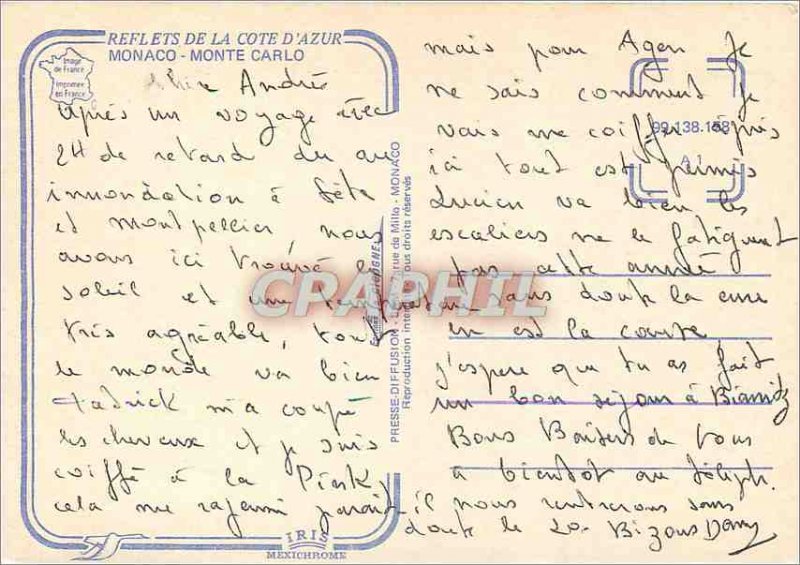 REFLETS DE LA COTE D'AZUR
MONACO - MONTE CARLO
Image
de France
Imprimée
en France
chère Andrée
après un voyage avec
24 de retard du au
innondation à Sète
et Montpellier, nous
avons ici trouvé le
soleil et une température
très agréable, tout
le monde va bien
Patrick m'a coupé
les cheveux et je suis
coiffé à la Pink
cela me rajeuni parait-il
PRESSE-DIFFUSION - rue de Millo - MONACO
Reproduction tous droits réservés
mais pour Agen je
ne sais comment je
vais me coiffer après
ici tout est permis
Lucien va bien les
escaliers ne le fatiguent
pas cette année
sans dout la cure
en est la cause,
j'espere que tu as fait
un bon séjour à Biarritz
Bons Baisers de tous
à bientot au téléph.
nous rentrerons sans
dout le 20. Bizous Dany
99.138.158
A 1
IRIS
MEXICHROME
CRAPHIL